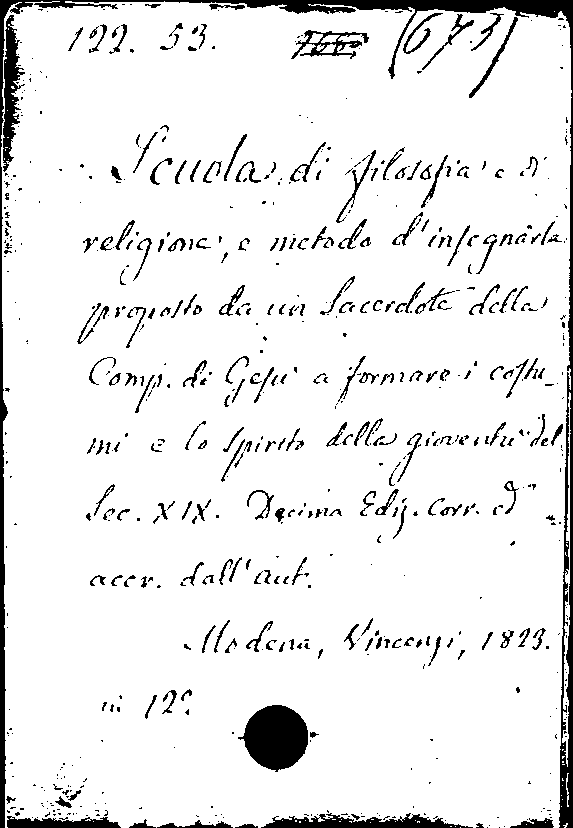 122. 53. (673)
Scuola di filosofia e di
religione, e metodo d'insegnarla
proposto da un Sacerdote della
Comp. di Gesù a formare i costu-
mi e lo spirito della gioventù del
Sec. XIX. Decima Ediz. corr. ed
accr. dall'aut.
Modena, Vincenzi, 1823.
in 12°.